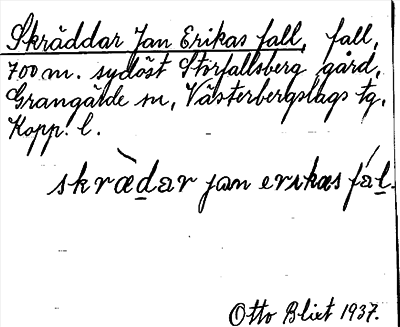 Skräddar Jan Erikas fall, fall,
700 m. sydöst Storfallsberg gård,
Grangärde sn, Västerbergslags tg,
Kopp. l.
skræ̀dar jan erikas fál.
Otto Blixt 1937.